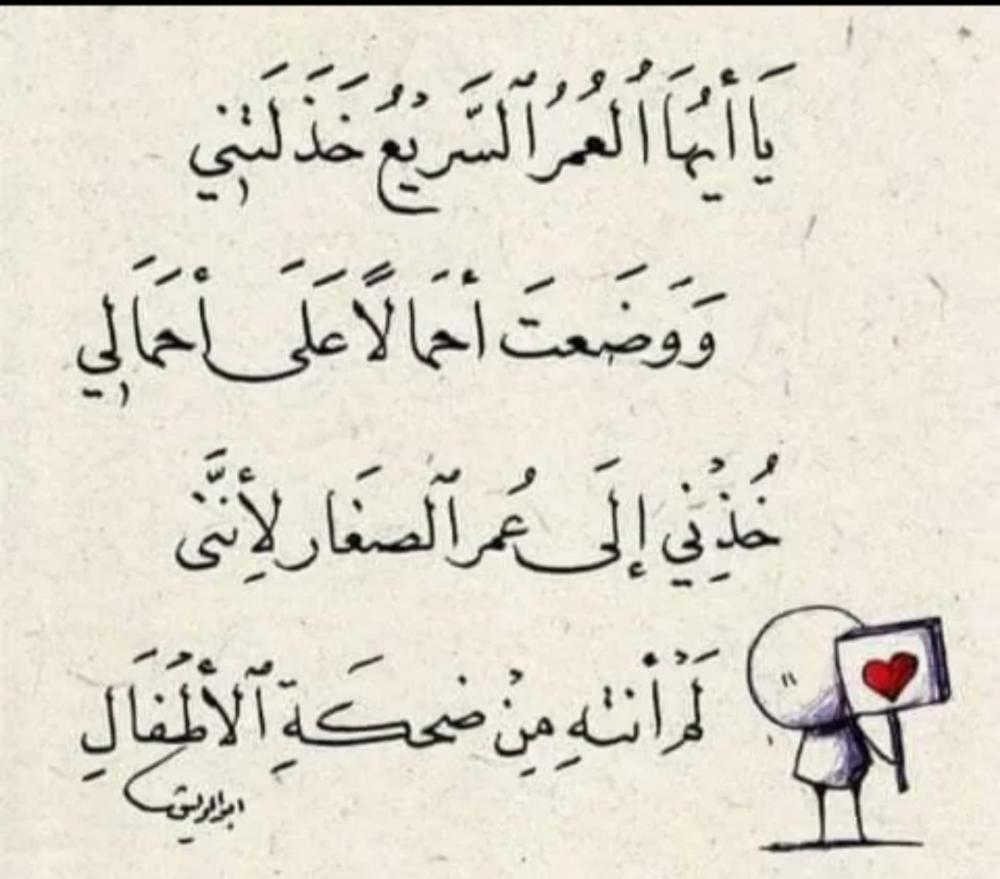 يَا أَيُّهَا ٱلعُمُرُ ٱلسَّرِيْعُ خَذَلتَنِي
وَوَضَعتَ أحمَالًا عَلَى أحمَالِي
خُذْنِي إِلَى عُمرِ ٱلصغَار لِأنَّنى
لَمْ أَنتَهِ مِنْ ضحكَةِ ٱلأَطْفَالِ